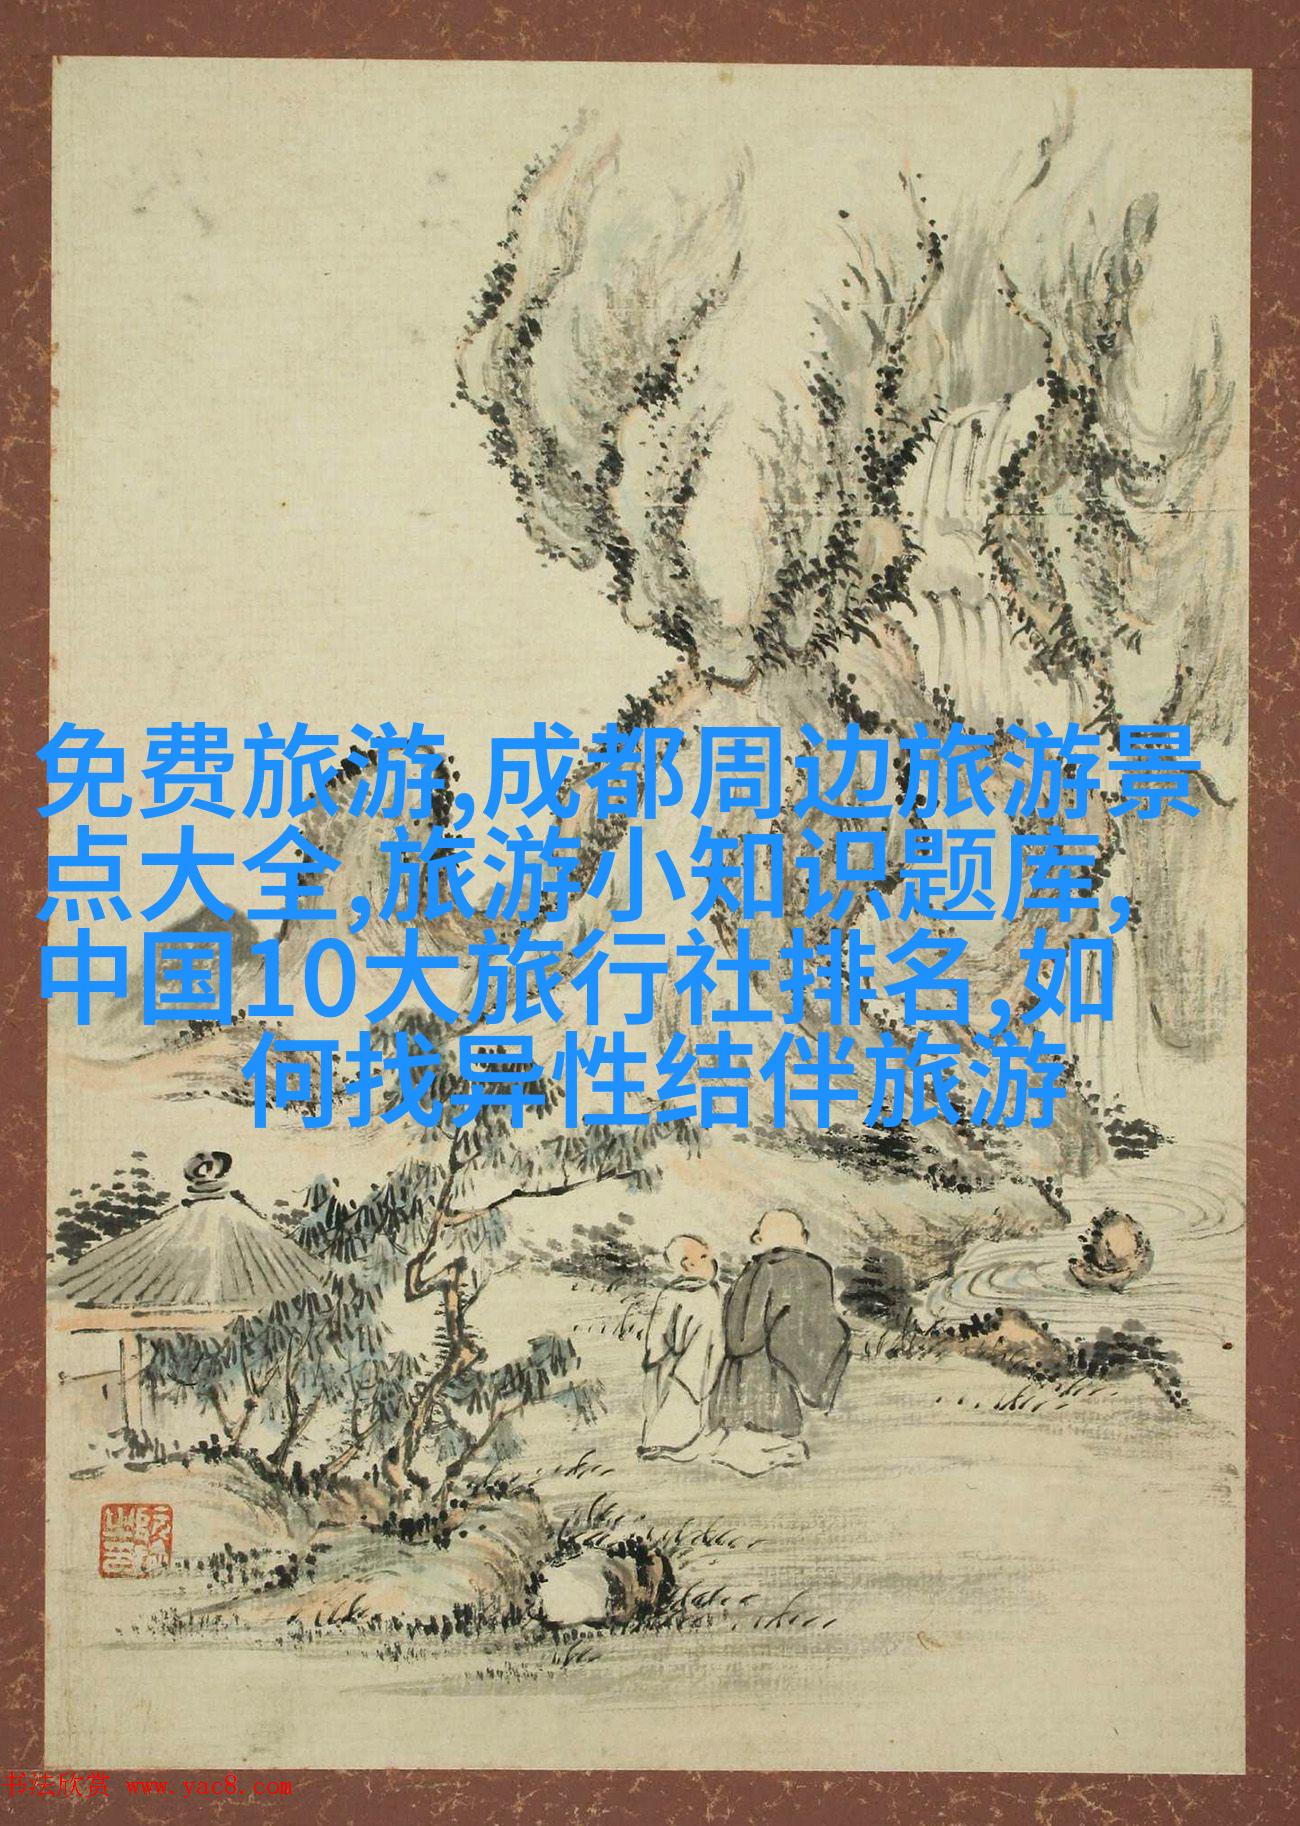 免费旅游,成都周边旅游景
点大全,旅游小知识题库,
中国10大旅行社排名,如
何找异性结伴旅游
书法欣赏 www.yac8.com